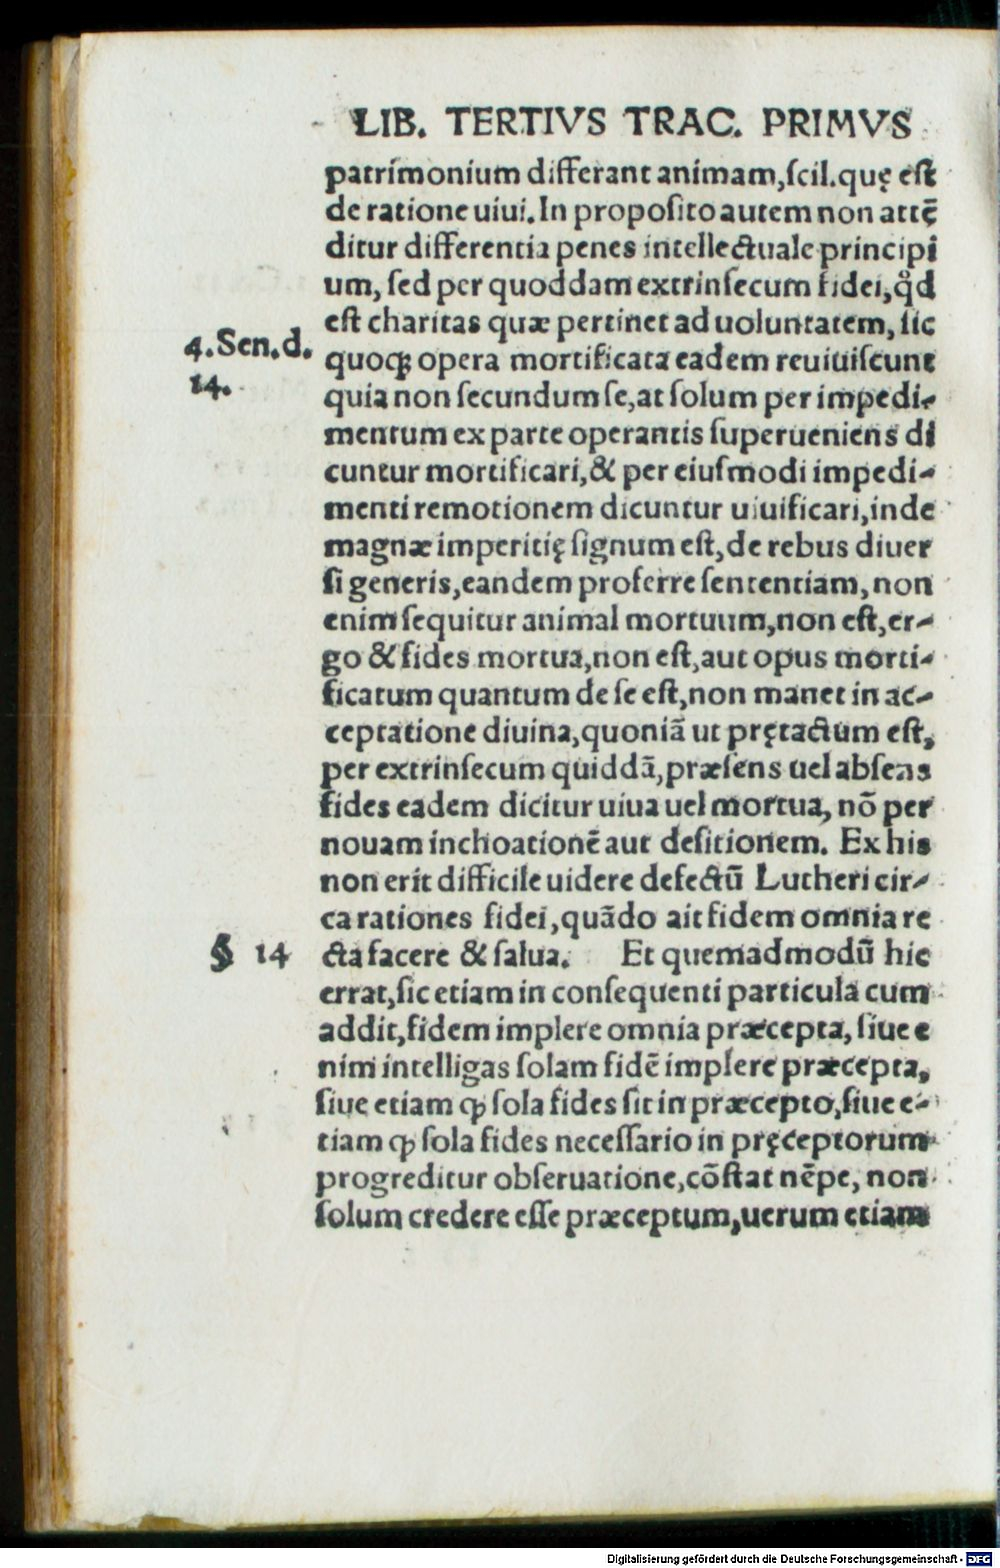 LIB. TERTIVS TRAC. PRIMVS
patrimonium differant animam,ſcil.quę eſt
de ratione uiui. In propoſito autem non attẽ
ditur differentia penes intellectuale principi
um, ſed per quoddam extrinſecum fidei,q̊d
eſt charitas quæ pertinet ad uoluntatem, ſic
4.Sen.d.
14.
quoqꝫ opera mortificata eadem reuiuiſcunt
quia non ſecundum ſe,at ſolum per impedi-
mentum ex parte operantis ſuperueniens di
cuntur mortificari,& per eiuſmodi impedi-
menti remotionem dicuntur uiuificari,inde
magnæ imperitię ſignum eſt,de rebus diuer
ſi generis,eandem proferre ſententiam, non
enim ſequitur animal mortuum,non eſt,er-
go & fides mortua,non eſt,aut opus morti-
ficatum quantum de ſe eſt,non manet in ac-
ceptatione diuina,quoniã ut prętactum eſt,
per extrinſecum quiddã,præſens uel abſens
fides eadem dicitur uiua uel mortua, nõ per
nouam inchoationẽ aut deſitionem. Ex his
non erit difficile uidere defectũ Lutheri cir-
ca rationes fidei,quãdo ait fidem omnia re
§ 14
cta facere & ſalua. Et quemadmodũ hic
errat,ſic etiam in conſequenti particula cum
addit,fidem implere omnia præcepta, ſiue e
nim intelligas ſolam fidẽ implere præcepta,
ſiue etiam ꝙ ſola fides ſit in præcepto,ſiue e-
tiam ꝙ ſola fides neceſſario in pręceptorum
progreditur obſeruatione,cõſtat nẽpe, non
ſolum credere eſſe præceptum,uerum etiam
Digitalisierung gefördert durch die Deutsche Forschungsgemeinschaft - DFG